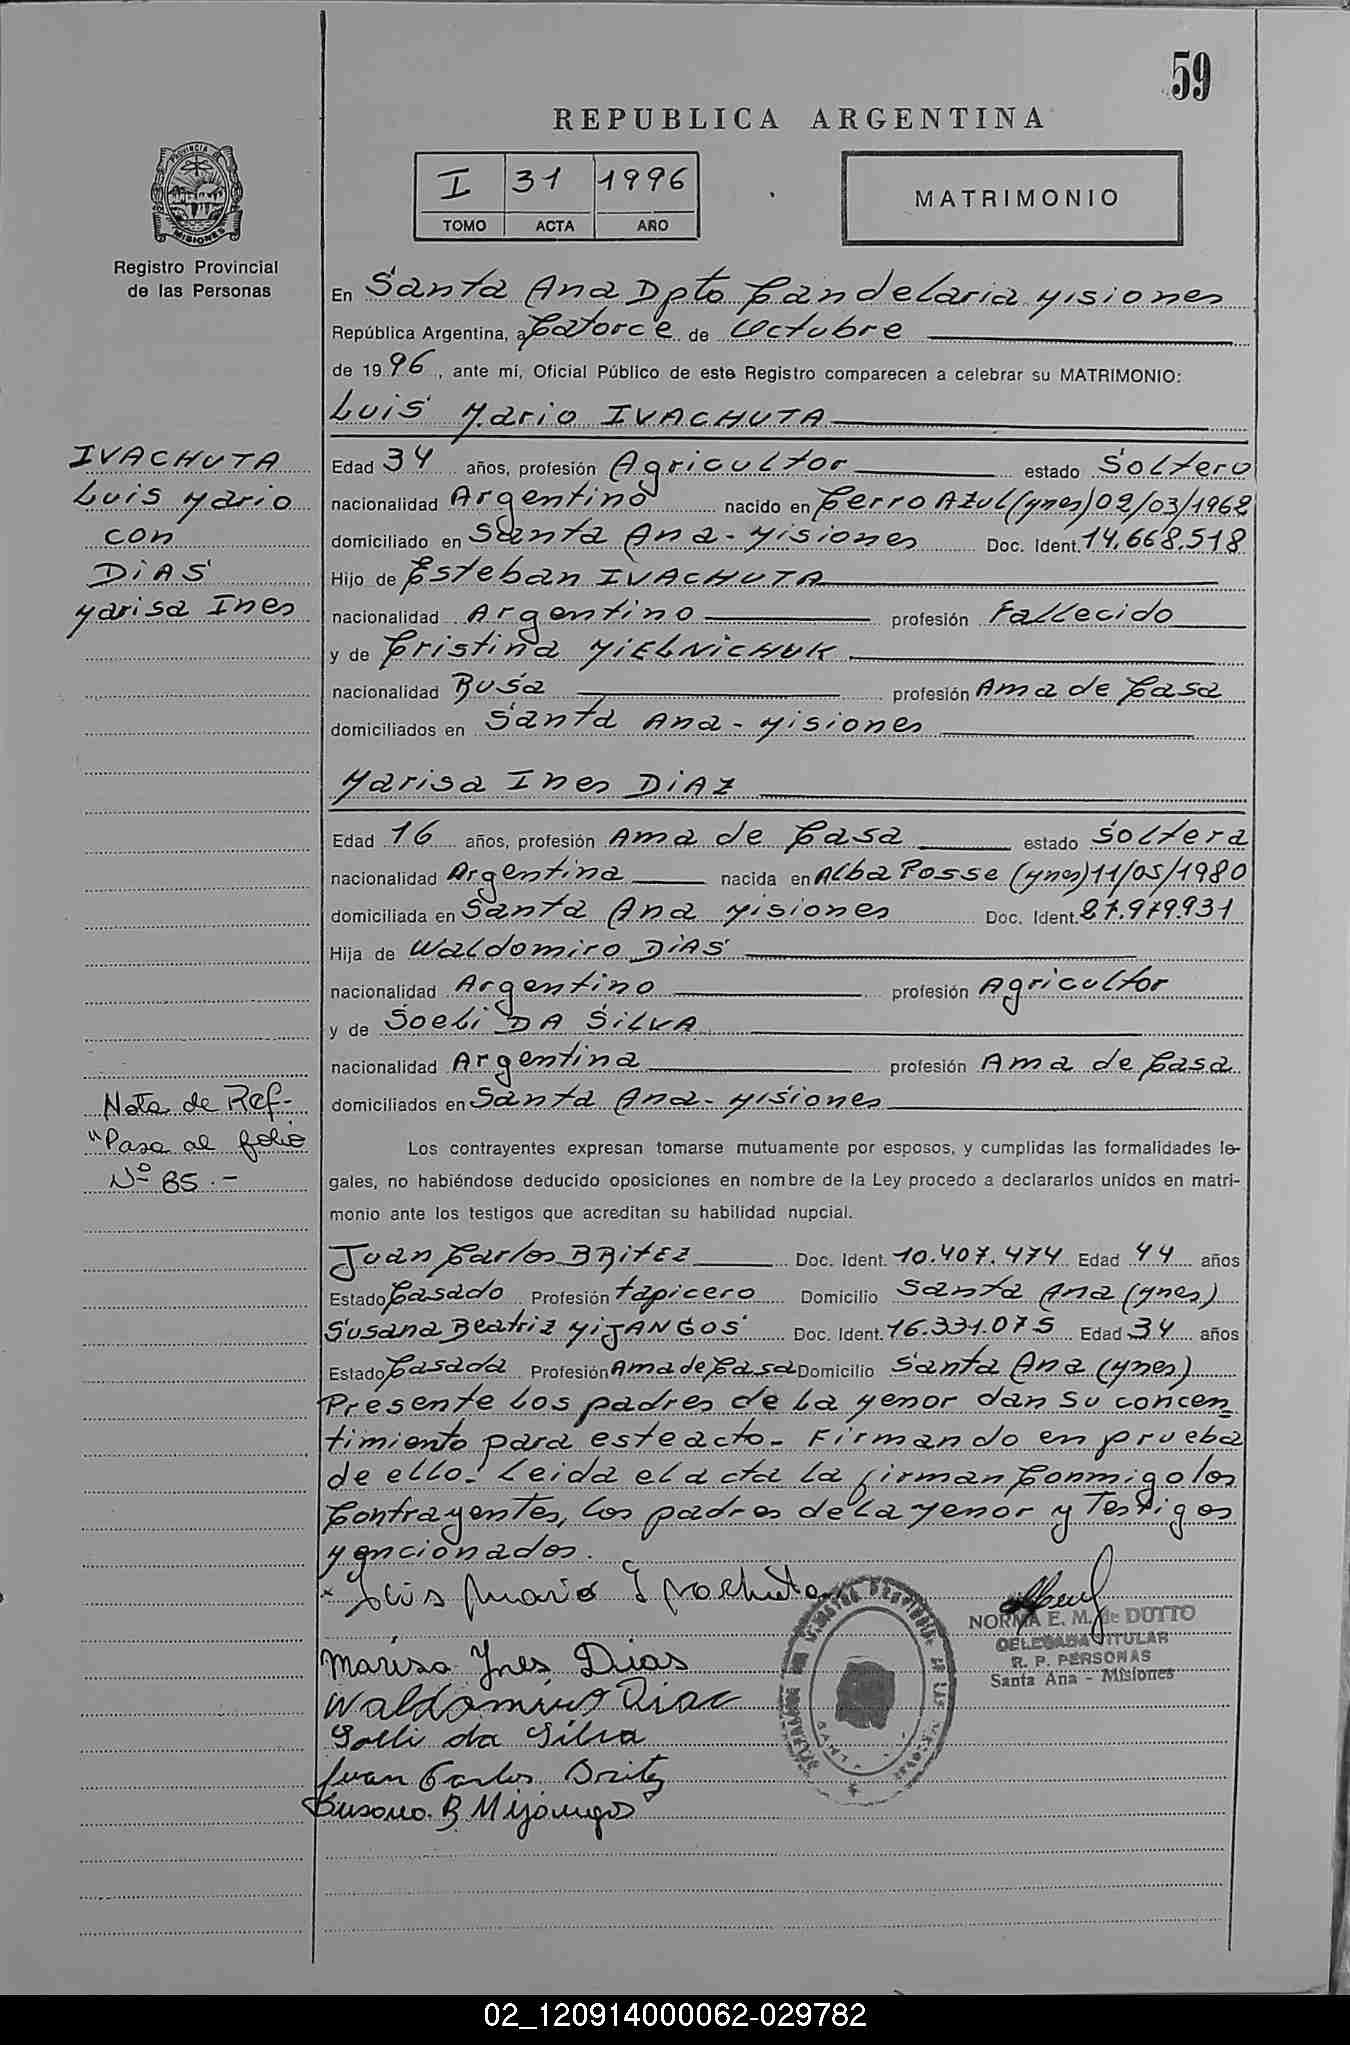 59
REPUBLICA ARGENTINA
I 31 1996
TOMO ACTA AÑO
MATRIMONIO
PROVINCIA DE
MISIONES
Registro Provincial
de las Personas
En Santa Ana Dpto Candelaria Misiones
República Argentina, a Catorce de Octubre
de 1996, ante mí, Oficial Público de este Registro comparecen a celebrar su MATRIMONIO:
Luis Mario IVACHUTA
IVACHUTA
Luis Mario
con
DiAS
Marisa Ines
Edad 34 años, profesión Agricultor estado Soltero
nacionalidad Argentino nacido en Cerro Azul (Mnes) 02/03/1962
domiciliado en Santa Ana - Misiones Doc. Ident. 14.668.518
Hijo de Esteban IVACHUTA
nacionalidad Argentino profesión Fallecido
y de Cristina MIELNICHUK
nacionalidad Rusa profesión Ama de Casa
domiciliados en Santa Ana - Misiones
Marisa Ines DiAZ
Edad 16 años, profesión Ama de Casa estado Soltera
nacionalidad Argentina nacida en Alba Posse (Mnes) 11/05/1980
domiciliada en Santa Ana Misiones Doc. Ident. 27.979.931
Hija de Waldomiro DiAS
nacionalidad Argentino profesión Agricultor
y de Soeli DA SILVA
nacionalidad Argentina profesión Ama de Casa
domiciliados en Santa Ana - Misiones
Nota de Ref-
"Pasa al folio
Nº 85.-
Los contrayentes expresan tomarse mutuamente por esposos, y cumplidas las formalidades le-
gales, no habiéndose deducido oposiciones en nombre de la Ley procedo a declararlos unidos en matri-
monio ante los testigos que acreditan su habilidad nupcial.
Juan Carlos BRitEZ Doc. Ident. 10.407.474 Edad 44 años
Estado Casado Profesión tapicero Domicilio Santa Ana (Mnes)
Susana Beatriz MIJANGOS Doc. Ident. 16.331.075 Edad 34 años
Estado Casada Profesión Ama de Casa Domicilio Santa Ana (Mnes)
Presente los padres de la Menor dan su concen=
timiento para este acto - Firmando en prueba
de ello - Leida el acta la firman Conmigo los
Contrayentes, los padres de la Menor y Testigos
Mencionados.
Luis Mario Ivachuta
Marisa Ynes Dias
Waldomiro Dias
Soeli da Silva
Juan Carlos Britez
Susana B Mijangos
NORMA E. M. de DUTTO
DELEGADA TITULAR
R. P. PERSONAS
Santa Ana - Misiones
02_120914000062-029782